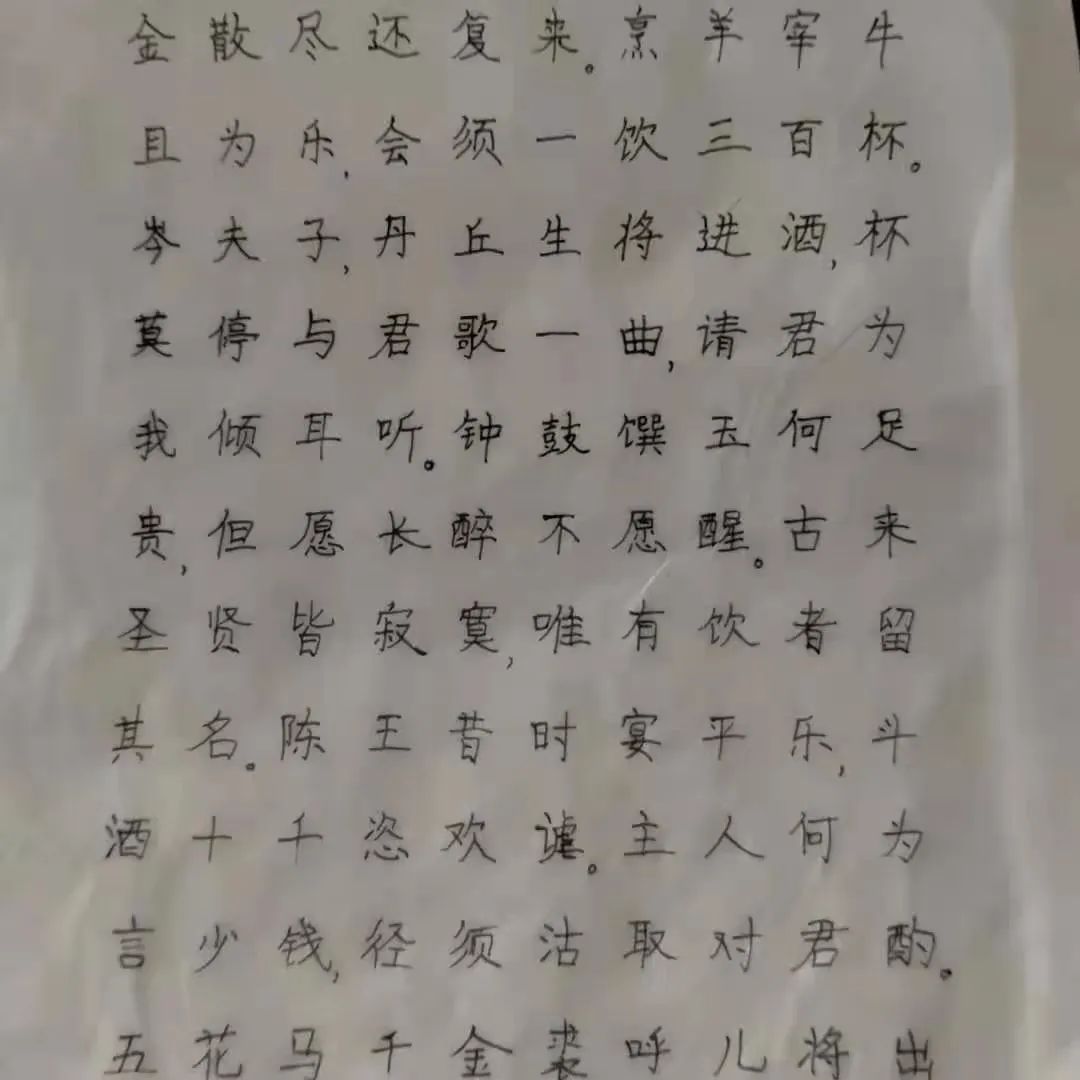 金散尽还复来。烹羊宰牛
且为乐,会须一饮三百杯。
岑夫子,丹丘生将进酒,杯
莫停与君歌一曲,请君为
我倾耳听。钟鼓馔玉何足
贵,但愿长醉不愿醒。古来
圣贤皆寂寞,唯有饮者留
其名。陈王昔时宴平乐,斗
酒十千恣欢谑。主人何为
言少钱,径须沽取对君酌。
五花马千金裘呼儿将出